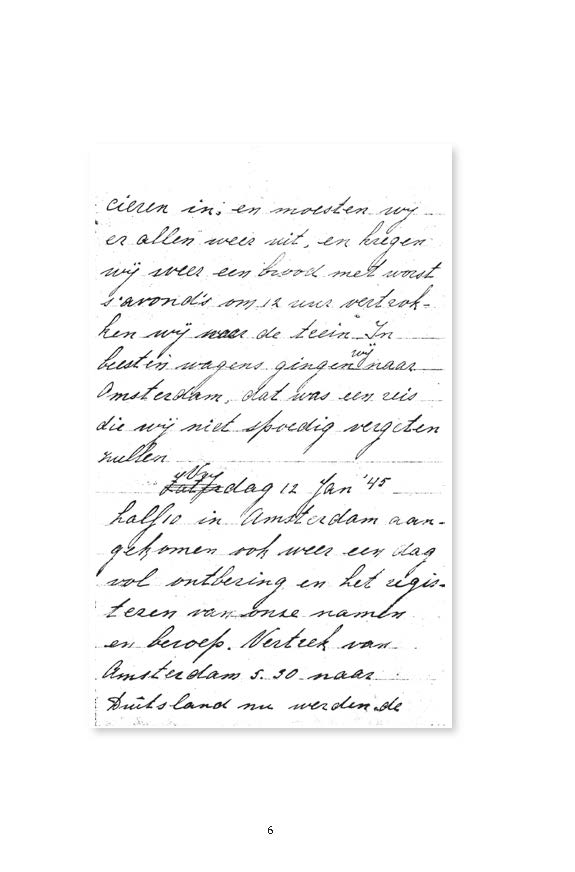 cieren in, en moesten wy
er allen weer uit, en kregen
wÿ weer een brood met worst
s'avond's om 12 uur vertrok-
ken wÿ naar de teein In
beesten wagens gingen wÿ naar
Amsterdam, dat was een reis
die wÿ niet spoedig vergeten
zullen
Vrydag 12 Jan '45
half10 in Amsterdam aan-
gekomen ook weer een dag
vol ontbering en het regis-
teren van onze namen
en beroep. Vertrek van
Amsterdam 5.30 naar
Duitsland nu werden de
6